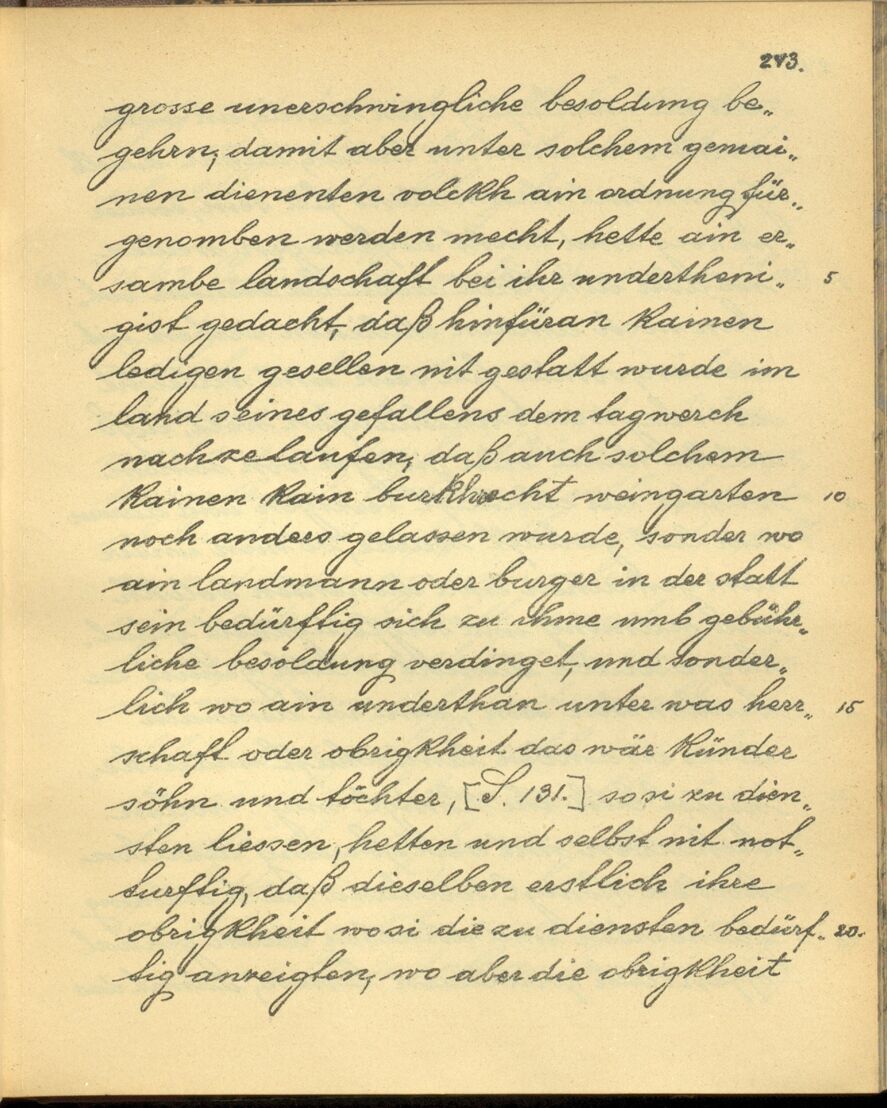 273.
grosse unerschwingliche besoldung be„
gehrn; damit aber unter solchem gemai„
nen dienenten volckh ain ordnung für„
genomben werden mecht, hette ain er„
sambe landschaft bei ihr undertheni„ 5
gist gedacht, daß hinfüran kainen
ledigen gesellen nit gestatt wurde im
land seines gefallens dem tagwerch
nachzelaufen, daß auch solchem
kainen kain burkhrecht weingarten 10
noch anders gelassen wurde, sonder wo
ain landmann oder burger in der statt
sein bedürftig sich zu ihme umb gebühr„
liche besoldung verdinget, und sonder„
lich wo ain underthan unter was herr„ 15
schaft oder obrigkheit das wär künder
söhn und töchter, [S. 131.] so si zu dien„
sten liessen, hetten und selbst nit not„
turftig, daß dieselben erstlich ihre
obrigkheit wo si die zu diensten bedürf„ 20.
tig anzeigten, wo aber die obrigkheit